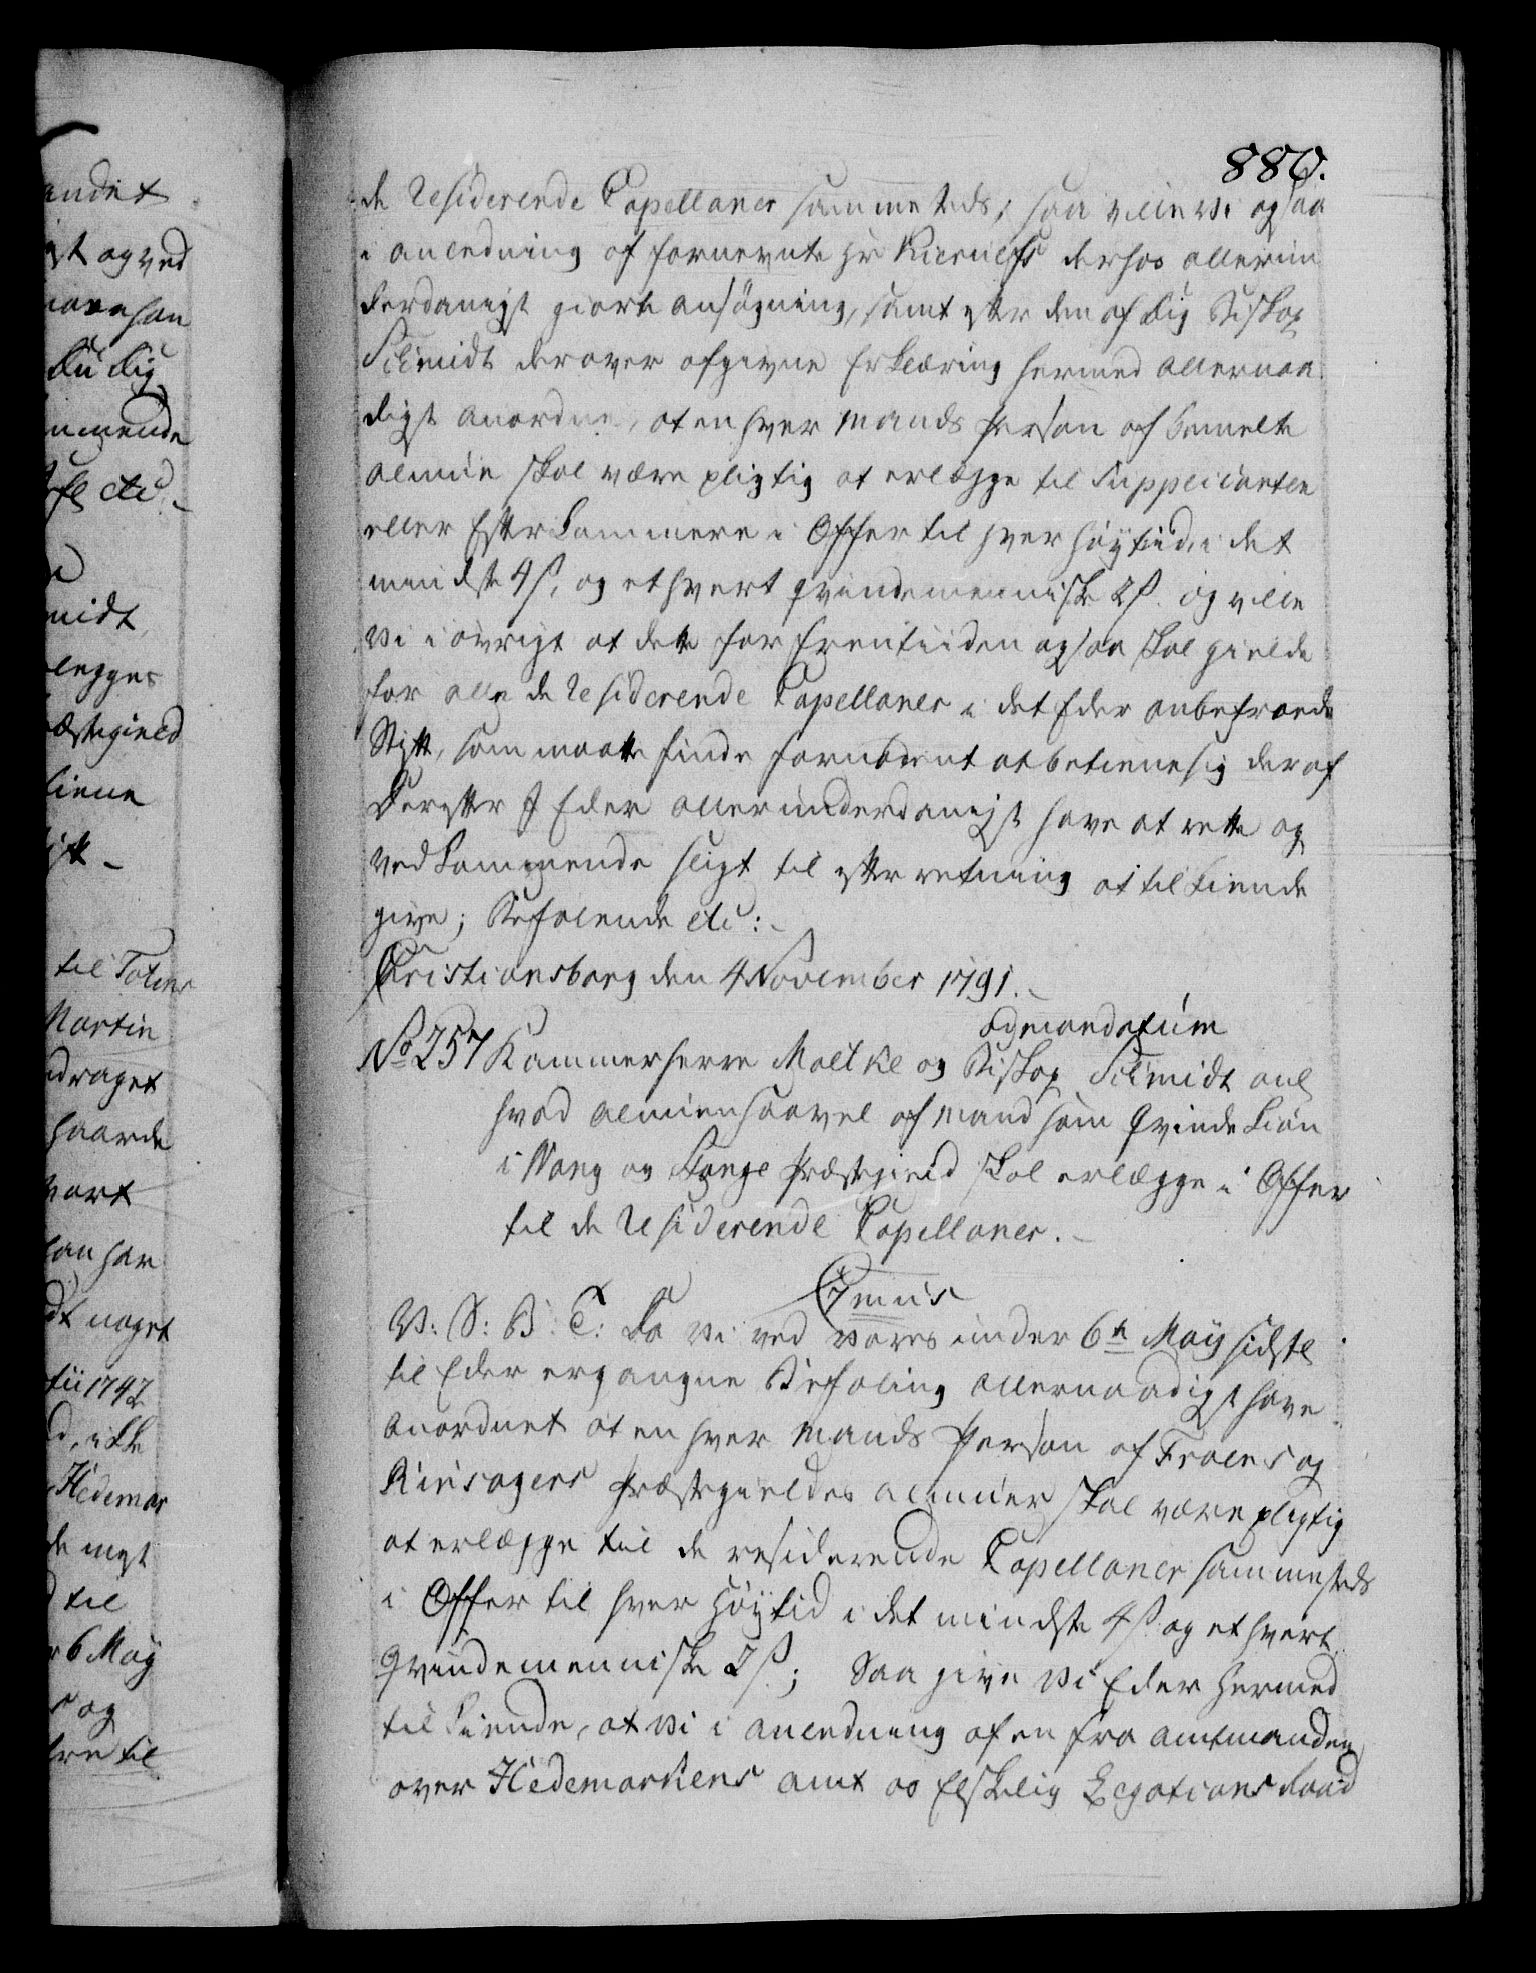 880.
de Residerende Capellaner sammesteds; saa ville vi ogsaa
i anledning af fornevnte Hr Kierulfs derhos allerun
derdanigst giorte ansøgning, samt efter den af Dig Biskop
Schmidt derover afgivne Erklæring hermed allernaa
digst anordne, at en hver Mands Person af bemelte
almue skal være pligtig at erlægge til Supplicanten
eller Efterkommere i Offer til hver Høytid, i det
mindste 4 ß, og ethvert Qvindemenniske 2 ß. og ville
vi i øvrigt at dette for Fremtiiden ogsaa skal gielde
for alle de Residerende Capellaner i det Eder anbetroede
Stift, som maatte finde fornødent at betiene sig deraf
Derefter I Eder allerunderdanigst have at rette og
vedkommende sligt til efterretning at tilkiende
give; Befalende etc:
Christiansborg den 4 November 1791.
ad mandatum
No 257 Kammerherre Moltke og Biskop Schmidt anl
hvad almuen saavel af Mand som Qvinde Kiøn
i Wang og Stange Præstegield skal erlægge i Offer
til de Residerende Capellaner.
C 7mus
V: S: B: T: Da vi ved vores under 6te Maii sidste
til Eder ergangne Befaling allernaadigst have
anordnet at en hver Mands Person af Froens og
Ringsagers Præstegieldes almuer skal være pligtig
at erlægge til de residerende Capellaner sammesteds
i Offer til hver Høytid i det mindste 4 ß og ethvert
Qvindemenniske 2 ß; Saa give vi Eder hermed
til kiende, at vi i anledning af en fra amtmanden
over Hedemarkens amt os Elskelig Legations Raad